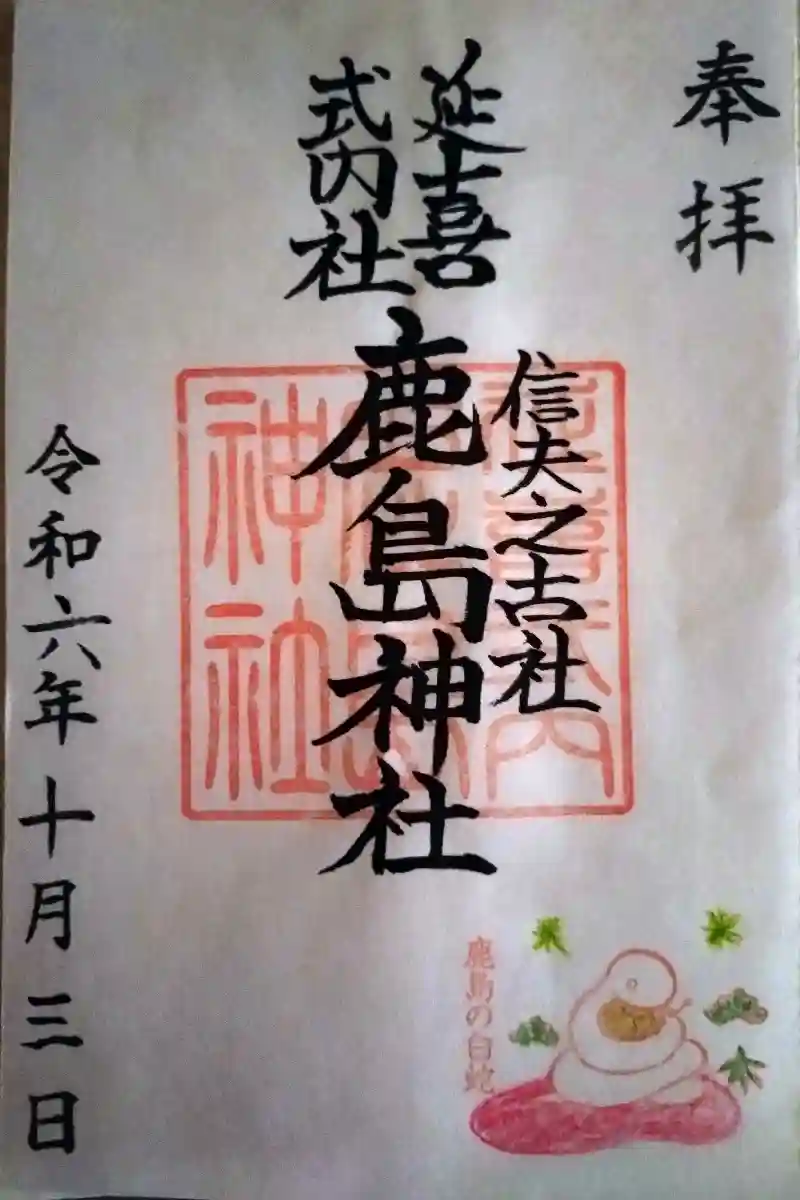 奉拝
延喜
式内社
信夫之古社
鹿島神社
令和六年十月三日
鹿島の白蛇
神社